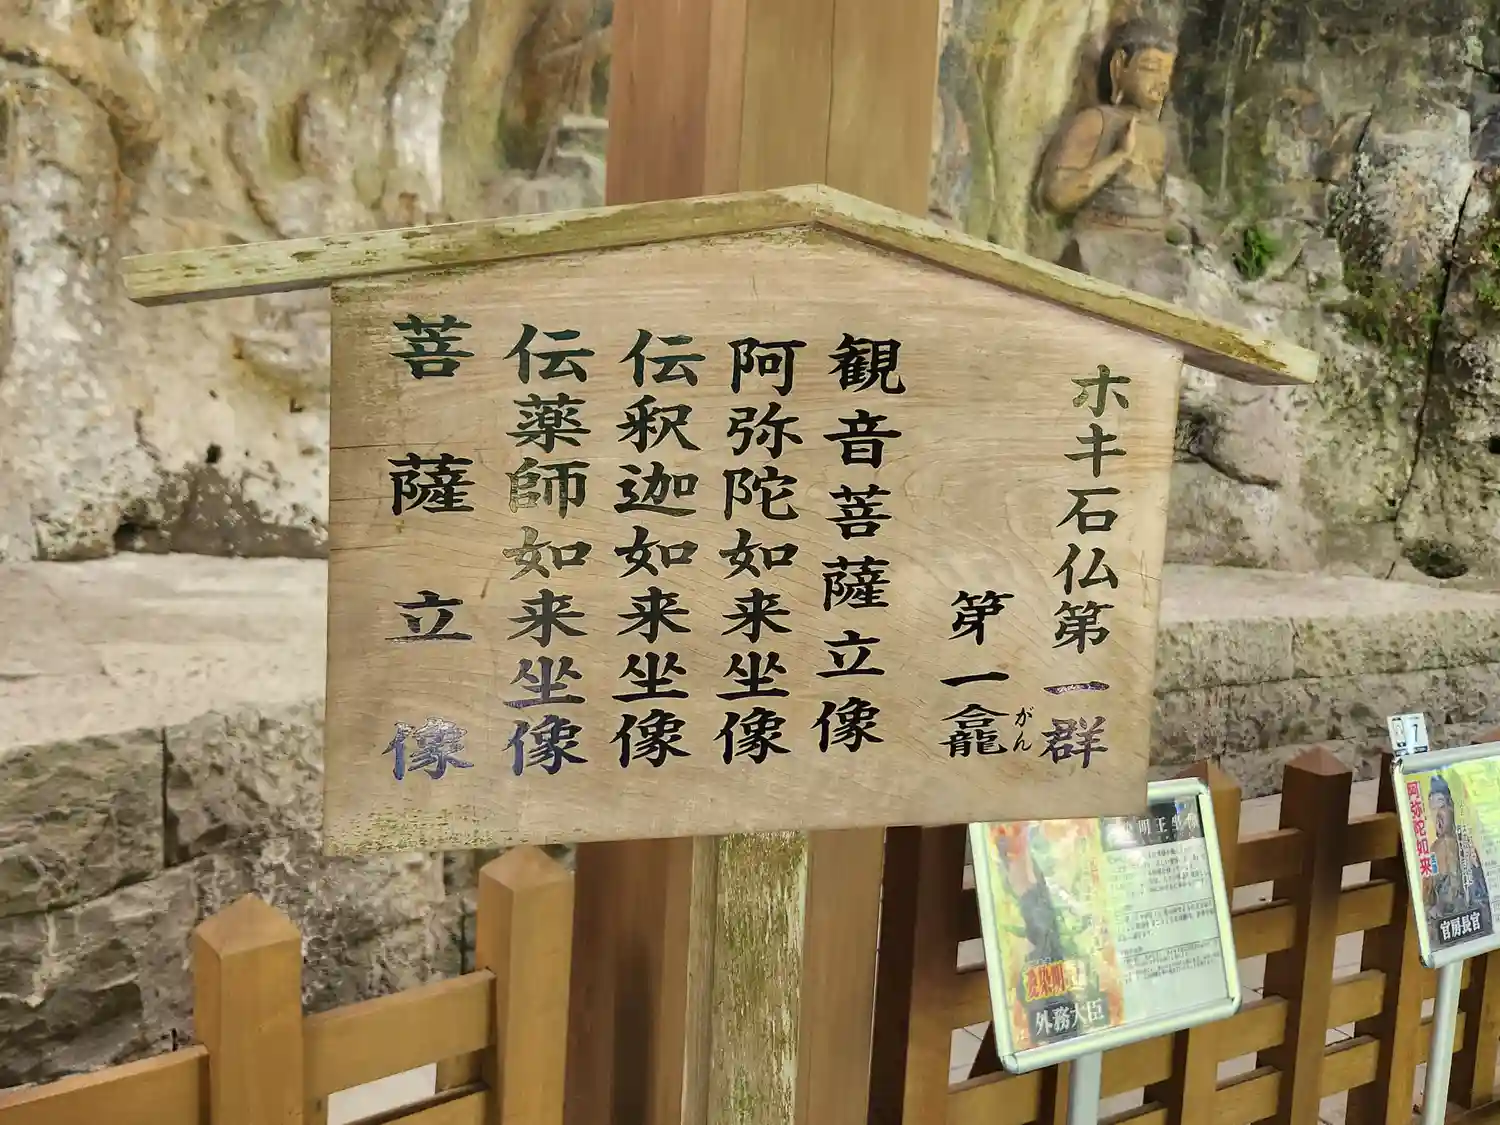 ホキ石仏第一群
第一龕
がん
観音菩薩立像
阿弥陀如来坐像
伝釈迦如来坐像
伝薬師如来坐像
菩薩立像
愛染明王
外務大臣
阿弥陀如来
官房長官
7